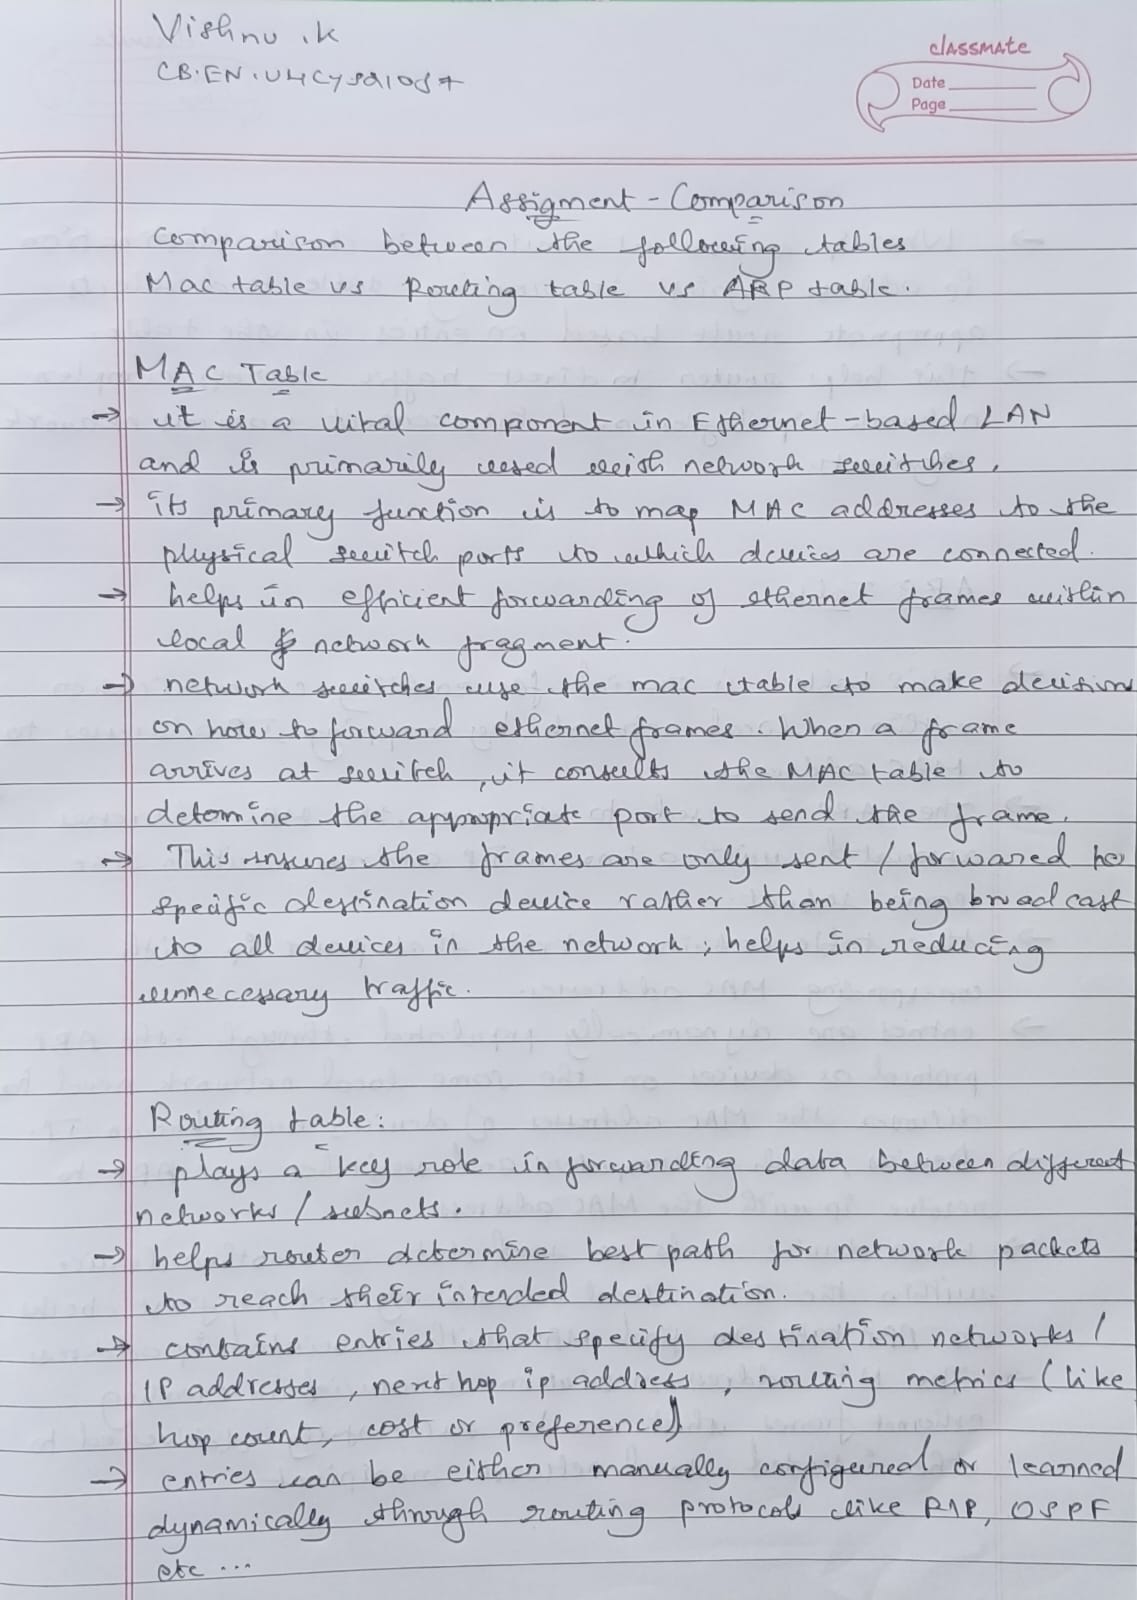 Vishnu .K
CB.EN.U4CYS21087
classmate
Date
Page
Assigment - Comparison
Comparison between the following tables
Mac table vs Routing table vs ARP table.
MAC Table
→ it is a vital component in Ethernet-based LAN
and is primarily used with network switches.
→ its primary function is to map MAC addresses to the
physical switch ports to which devices are connected.
→ helps in efficient forwarding of ethernet frames within
local network fragment.
→ network switches use the mac table to make decisions
on how to forward ethernet frames. When a frame
arrives at switch, it consults the MAC table to
detomine the appropriate port to send the frame.
→ This insures the frames are only sent / forwared to
specific destination device rather than being broadcast
to all devices in the network, helps in reducing
unnecessary traffic.
Routing table:
→ plays a key role in forwarding data between different
networks / subnets.
→ helps router determine best path for network packets
to reach their intended destination.
→ contains entries that specify destination networks /
IP addresses, next hop ip address, routing metrics (like
hop count, cost or preference)
→ entries can be either manually configured or learned
dynamically through routing protocols like RIP, OSPF
etc ...